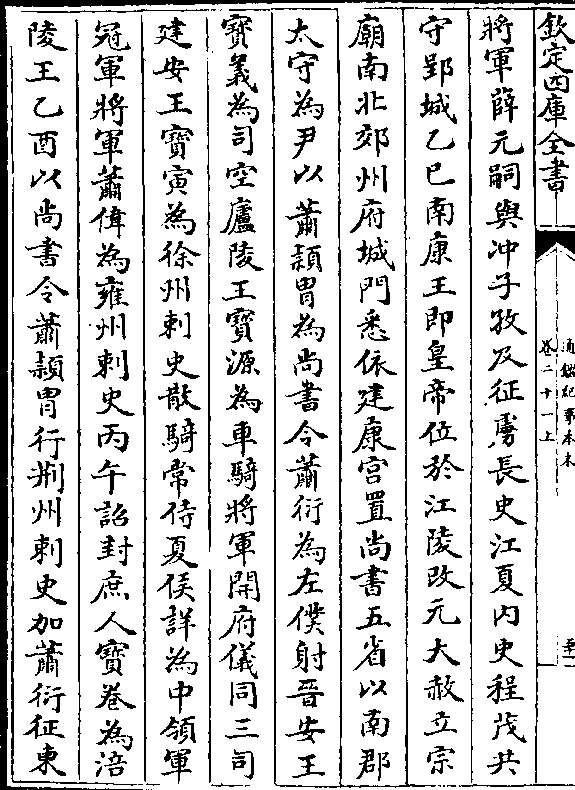 欽定四庫全書
通鑑紀事本末
卷二十一上
將軍薛元嗣與沖子孜及征虜長史江夏内史程茂共
守郢城乙巳南康王即皇帝位於江陵改元大赦立宗
廟南北郊州府城門悉依建康宫置尚書五省以南郡
太守為尹以蕭頴胄為尚書令蕭衍為左僕射晉安王
寶義為司空廬陵王寶源為車騎將軍開府儀同三司
建安王寶寅為徐州刺史散騎常侍夏侯詳為中領軍
冠軍將軍蕭偉為雍州刺史丙午詔封庶人寶卷為涪
陵王乙酉以尚書令蕭頴胄行荆州刺史加蕭衍征東